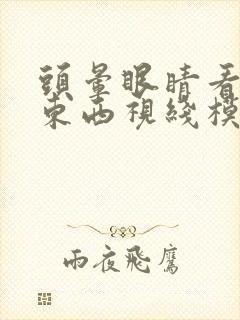 頭暈眼睛看
東西視綫模
雨夜飛鷹